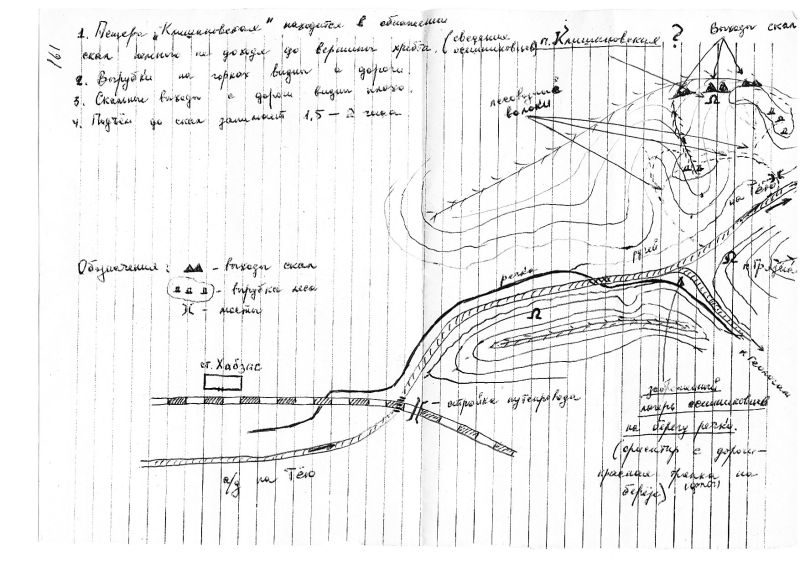 161
1. Пещера "Клишановская" находится в обнажении
скал немного не доходя до вершины хребта. (сведения
осинниковцев)
2. Вырубки на горках видны с дороги
3. Скальные выходы с дороги видны плохо.
4. Подъём до скал занимает 1,5 – 2 часа
п. Клишановская ?
Выходы скал
лесовозные
волоки
на Тёю
ручей
речка
Обозначения:
- выходы скал
- вырубка леса
- мосты
к Геологам
ст. Хабзас
- отройка путепровода
а/д на Тёю
лагерь осинниковцев
на берегу речки.
(ориентир с дороги-
красная тряпка на
березе)